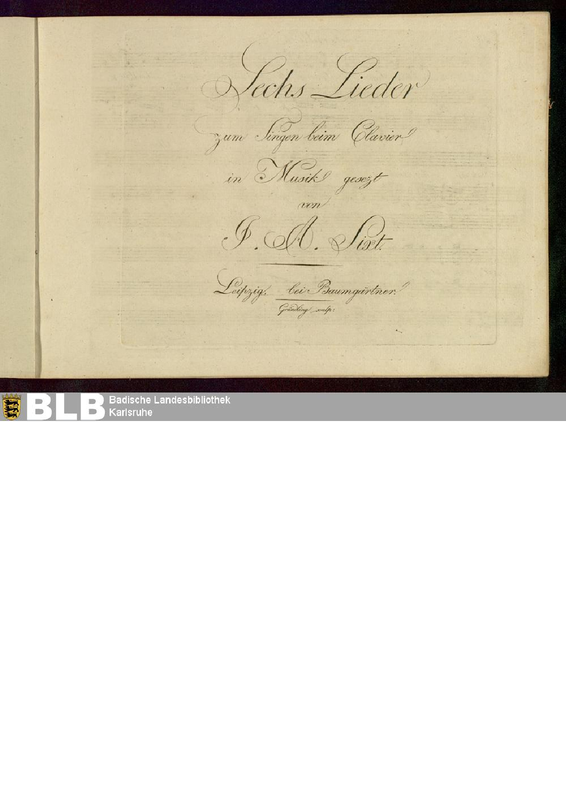 Sechs Lieder
zum Singen beim Clavier
in Musik gesezt
von
J. A. Sixt.
Leipzig, bei Baumgärtner.
sculp:
BLB Badische Landesbibliothek
Karlsruhe